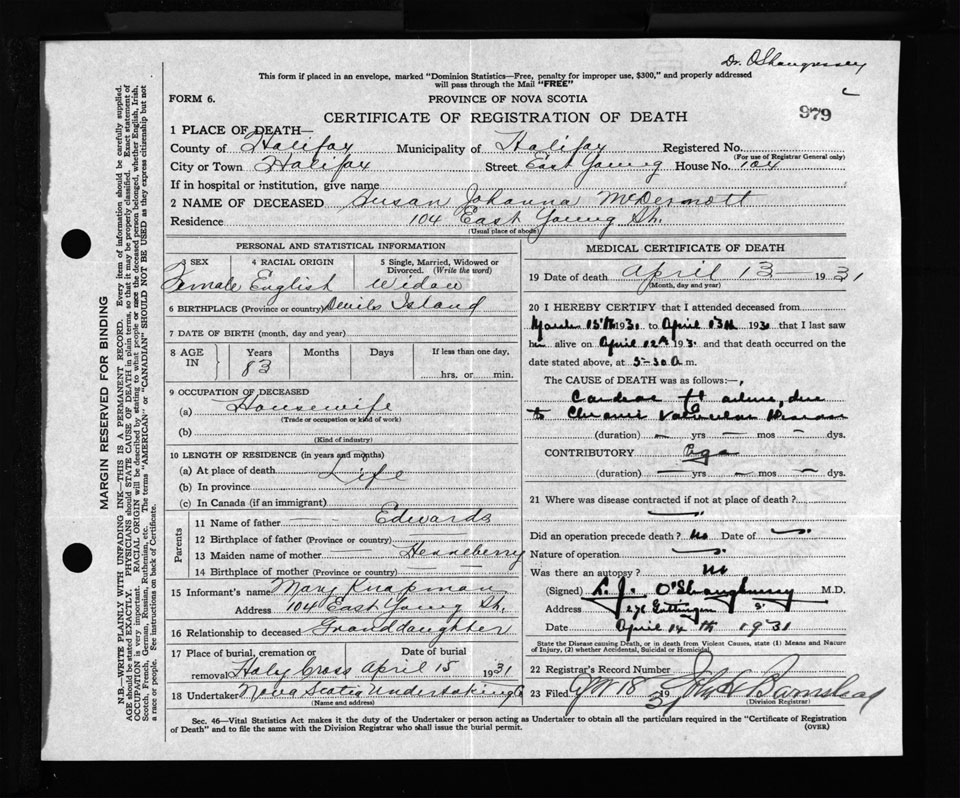 Dr. O'Shaugnessey
This form if placed in an envelope, marked "Dominion Statistics—Free, penalty for improper use, $300," and properly addressed
will pass through the Mail "FREE"
FORM 6.
PROVINCE OF NOVA SCOTIA
CERTIFICATE OF REGISTRATION OF DEATH
979
1 PLACE OF DEATH—
County of Halifax Municipality of Halifax Registered No.
(For use of Registrar General only)
City or Town Halifax Street East Young House No. 104
If in hospital or institution, give name
2 NAME OF DECEASED Susan Johanna McDermott
Residence 104 East Young St.
(Usual place of abode)
PERSONAL AND STATISTICAL INFORMATION
3 SEX 4 RACIAL ORIGIN 5 Single, Married, Widowed or Divorced. (Write the word)
Female English Widow
6 BIRTHPLACE (Province or country) Devils Island
7 DATE OF BIRTH (month, day and year)
8 AGE IN Years Months Days If less than one day,
83 hrs. or min.
9 OCCUPATION OF DECEASED
(a) Housewife
(Trade or occupation or kind of work)
(b)
(Kind of industry)
10 LENGTH OF RESIDENCE (in years and months)
(a) At place of death Life
(b) In province
(c) In Canada (if an immigrant)
Parents
11 Name of father — — Edwards
12 Birthplace of father (Province or country)
13 Maiden name of mother — Henneberry
14 Birthplace of mother (Province or country)
15 Informant's name Mary Knapman
Address 104 East Young St.
16 Relationship to deceased Granddaughter
17 Place of burial, cremation or removal Holy Cross Date of burial April 15 1931
18 Undertaker Nova Scotia Undertaking Co
(Name and address)
MEDICAL CERTIFICATE OF DEATH
19 Date of death April 13 — 1931
(Month, day and year)
20 I HEREBY CERTIFY that I attended deceased from
March 15th 1931 to April 13th 1931 that I last saw
her alive on April 12th 193. and that death occurred on the
date stated above, at 5-30 a m.
The CAUSE of DEATH was as follows:—
Cardiac Failure, due
to Chronic Valvular Disease
(duration) — yrs — mos — dys.
CONTRIBUTORY Age
(duration) — yrs — mos — dys.
21 Where was disease contracted if not at place of death?
Did an operation precede death? No Date of —
Nature of operation —
Was there an autopsy? No
(Signed) L. J. O'Shaughnessy M.D.
Address 276 Gottingen St.
Date April 14th 1931
State the Disease causing Death, or in death from Violent Causes, state (1) Means and Nature
of Injury, (2) whether Accidental, Suicidal or Homicidal.
22 Registrar's Record Number
23 Filed Apr 18 1931 John A Barnstead
(Division Registrar)
Sec. 46—Vital Statistics Act makes it the duty of the Undertaker or person acting as Undertaker to obtain all the particulars required in the "Certificate of Registration
of Death" and to file the same with the Division Registrar who shall issue the burial permit.
(OVER)
MARGIN RESERVED FOR BINDING
N.B.—WRITE PLAINLY WITH UNFADING INK—THIS IS A PERMANENT RECORD. Every item of information should be carefully supplied.
AGE should be stated EXACTLY. PHYSICIANS should STATE CAUSE OF DEATH in plain terms, so that it may be properly classified. Exact statement of
OCCUPATION is very important. RACIAL ORIGIN will be described by stating to what people or race the deceased person belonged, whether English, Irish,
Scotch, French, German, Russian, Ruthenian, etc. The terms "AMERICAN" or "CANADIAN" SHOULD NOT BE USED as they express citizenship but not
a race or people. See instructions on back of Certificate.